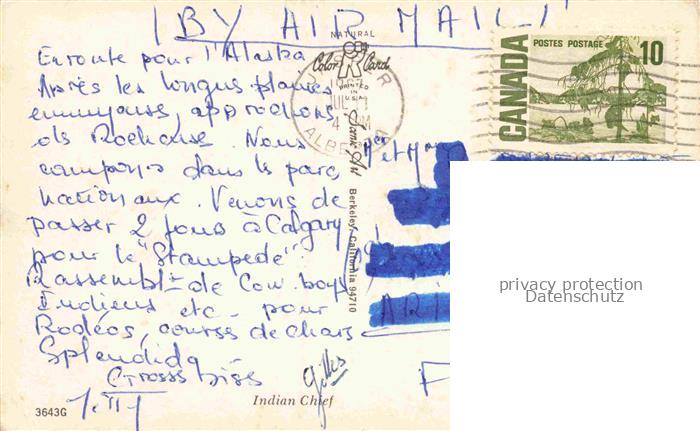 (BY AIR MAIL)
Enroute pour l'Alaska
Après les longues plaines
ennuyeuses, approchons
des Rocheuses. Nous
campons dans le parc
nationaux. Venons de
passer 2 jours à Calgary
pour le "Stampede".
Rassemblt de Cow boys
Indiens etc. pour
Rodéos, courses de chars
Splendide
Grosses bises
Gilles
3643G
Indian Chief
NATURAL
Color Card
PRINTED
IN
U.S.A.
Berkeley, California 94710
JASPER
ALBERTA
CANADA
POSTES POSTAGE
10
Mr et Mme
privacy protection
Datenschutz